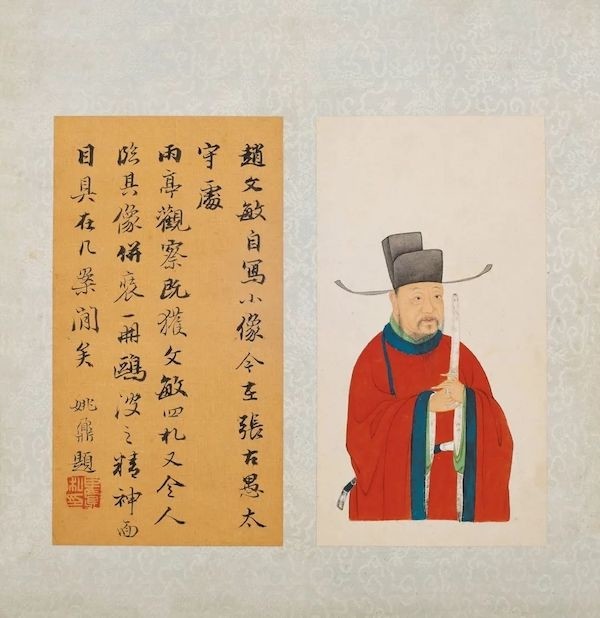 趙文敏自寫小像今在張古愚太
守處
雨亭觀察既獲文敏四札又令人
臨其像併裝一冊鷗波之精神面
目具在几案間矣 姚鼐題